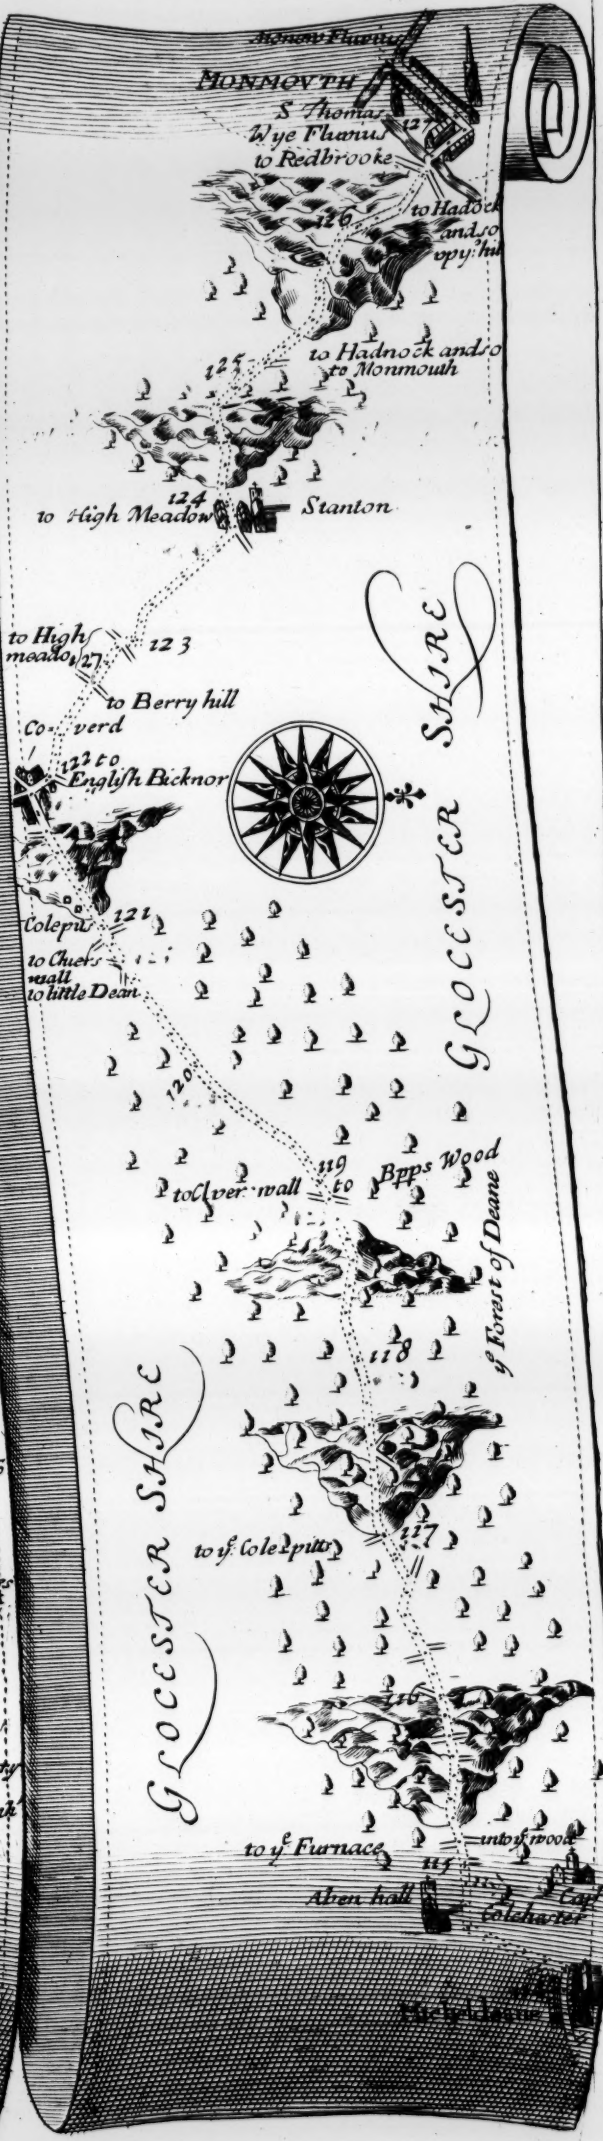 Monow Fluvius
MONMOVTH
S Thomas
127
Wye Fluvius
to Redbrooke
to Hadock
and so
vpy: hil
126
to Hadnock and so
to Monmouth
125
124
to High Meadow
Stanton
to High
meado
123
127
to Berry hill
Co-verd
122 to
English Bicknor
GLOCESTER SHIRE
Colepits
121
to
wall
to little Dean
120
119
to Clverwall
to
Bpps Wood
yͤ Forest of Deane
118
GLOCESTER SHIRE
117
to yͤ Cole pitts
116
to yͤ Furnace
into yͤ wood
115
Aben hall
Capt
Colchester